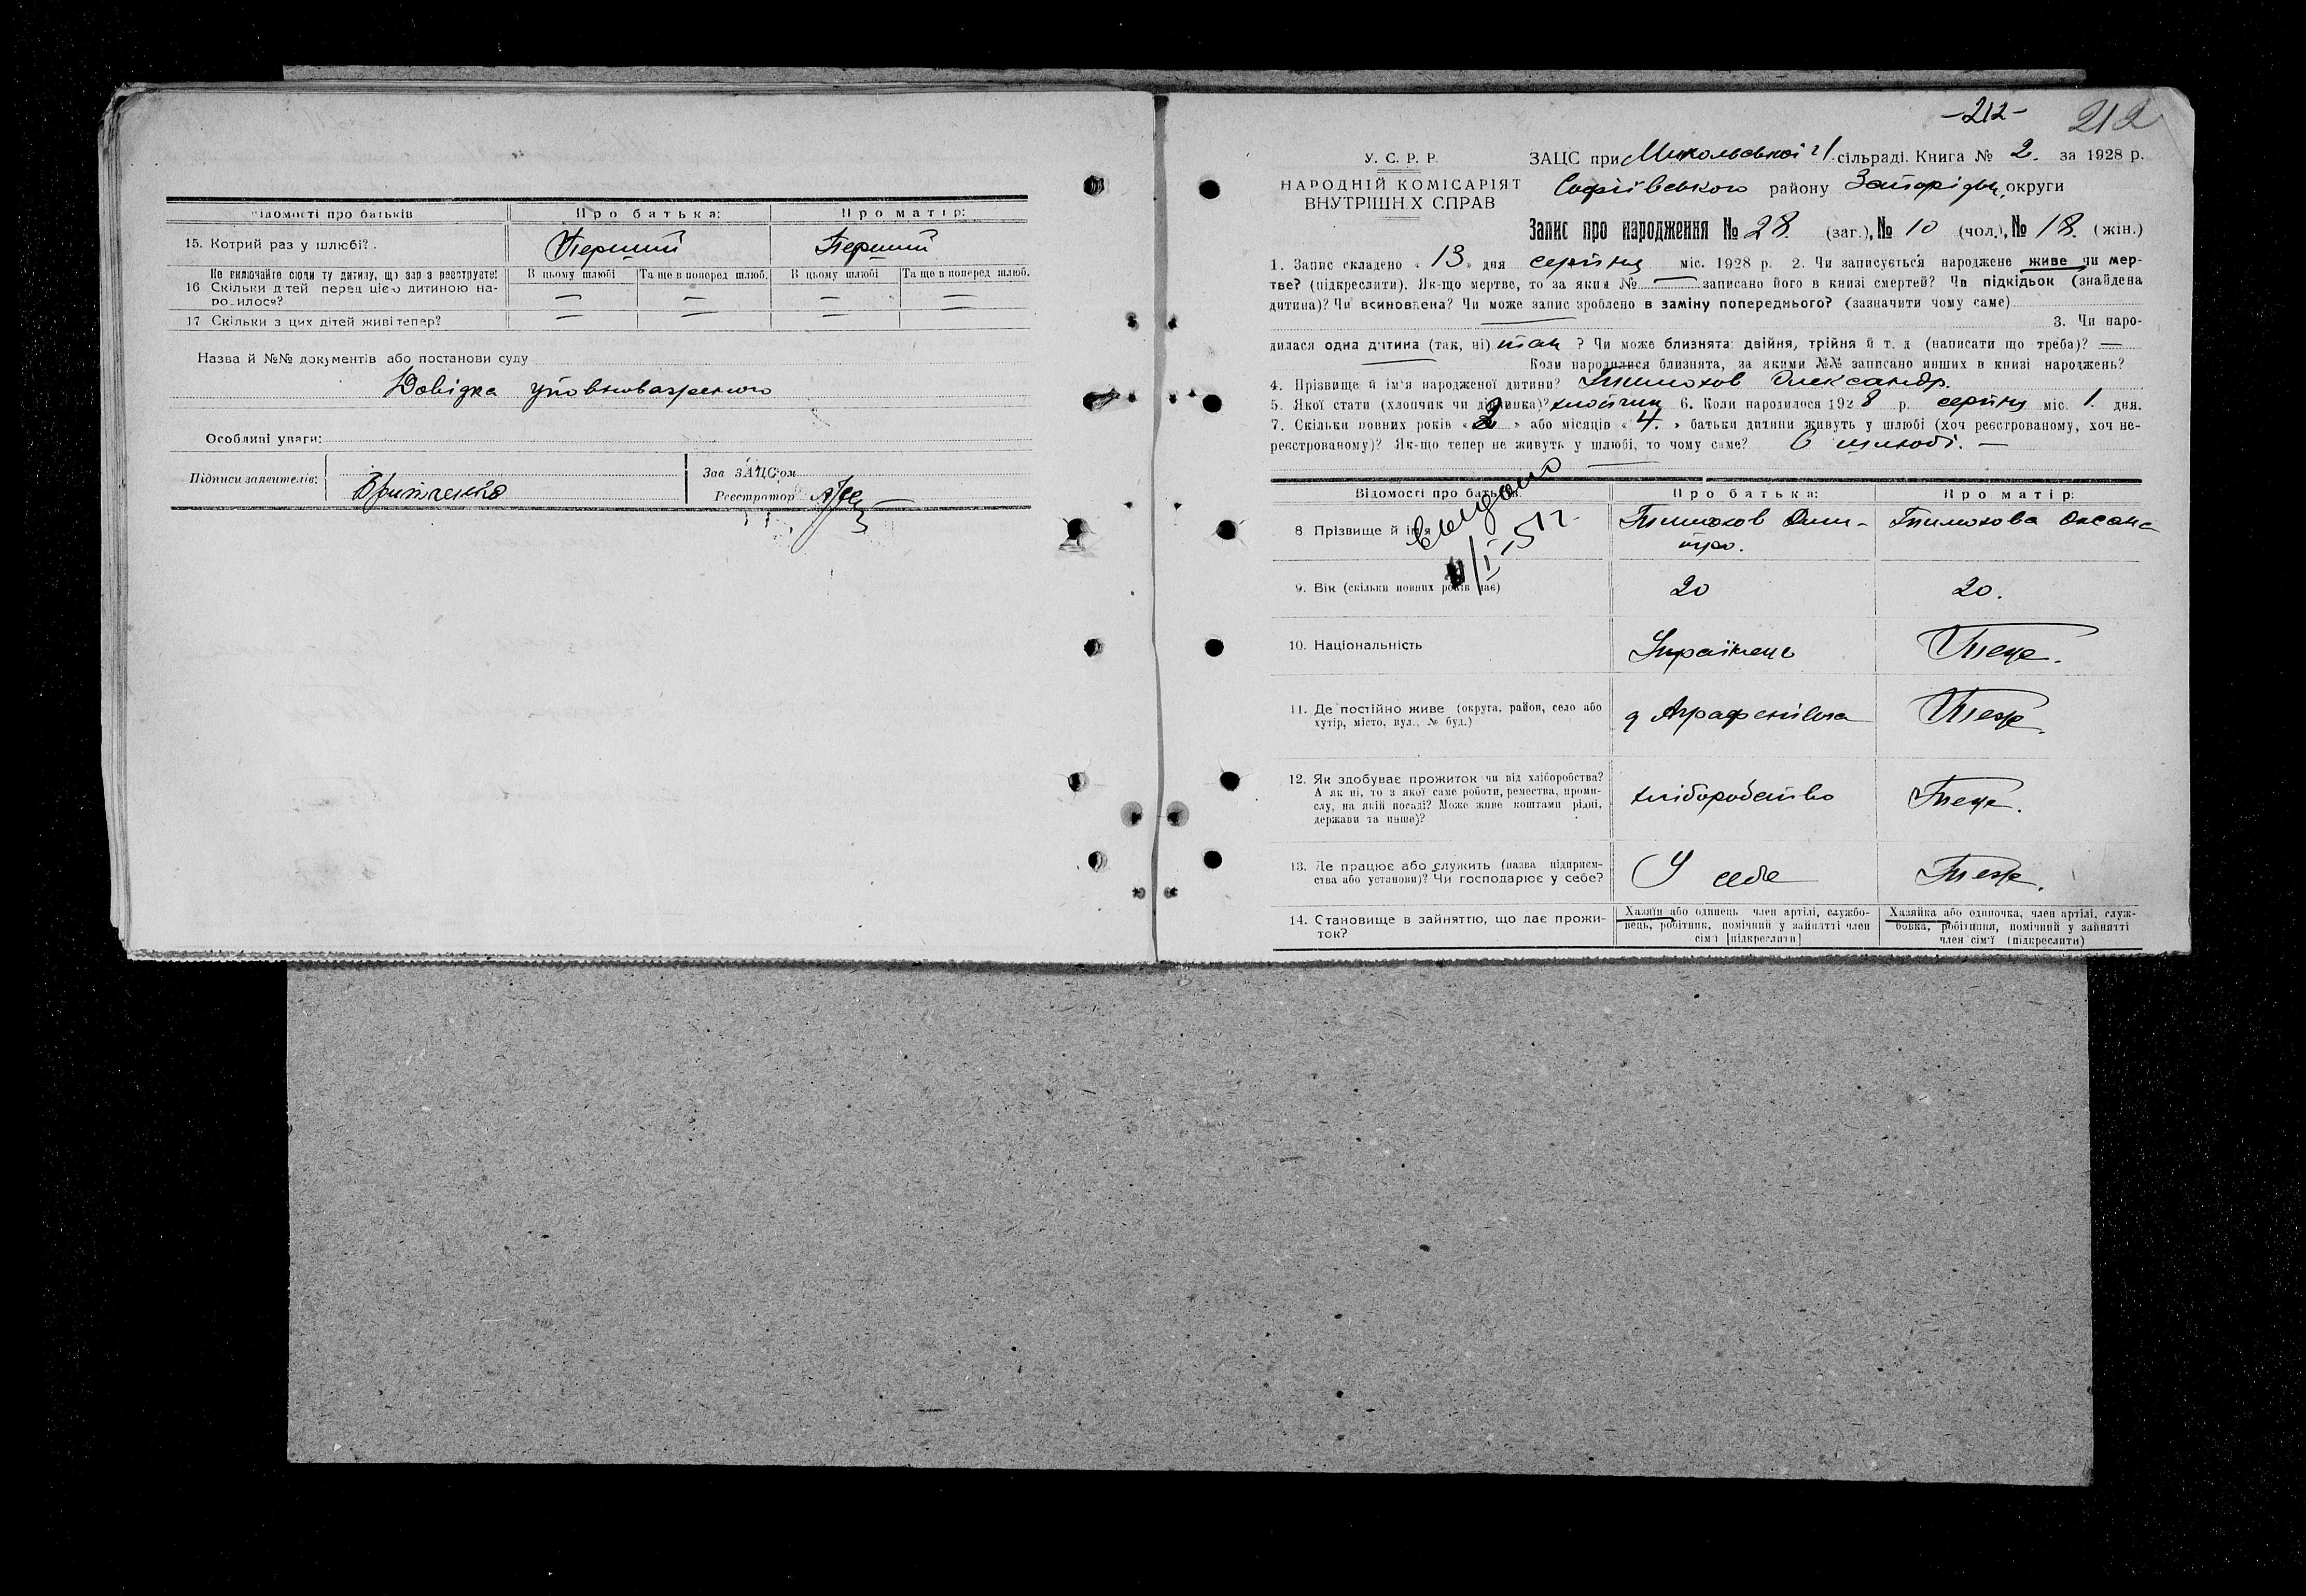 Відомости про батьків
Про батька:
Про матір:
15. Котрий раз у шлюбі?
Перший
Перший
Не включайте сюди ту дитину, що зараз реєструєте!
В цьому шлюбі
Та ще в поперед. шлюб.
В цьому шлюбі
Та ще в поперед. шлюб.
16. Скільки дітей перед цією дитиною на-
родилося?
— — — —
17. Скільки з цих дітей живі тепер?
— — — —
Назва й №№ документів або постанови суду
Довідка уповноваженого
Особливі уваги:
Підписи заявителів:
Зав. ЗАЦС'ом
Реєстратор
-212-
212
У. С. Р. Р.
НАРОДНІЙ КОМІСАРІЯТ
ВНУТРІШНІХ СПРАВ
ЗАЦС при Микольській сільраді. Книга № 2. за 1928 р.
Софіївського району Запорізьк. округи
Запис про народження № 28. (заг.), № 10 (чол.), № 18. (жін.)
1. Запис складено „13" дня серпня міс. 1928 р. 2. Чи записується народжене живе чи мер-
тве? (підкреслити). Як-що мертве, то за яким № — записано його в книзі смертей? Чи підкідьок (знайдена
дитина)? Чи всиновлена? Чи може запис зроблено в заміну попереднього? (зазначити чому саме)
— 3. Чи наро-
дилася одна дитина (так, ні) так ? Чи може близнята: двійня, трійня й т. д. (написати що треба)? —
Коли народилися близнята, за якими №№ записано инших в книзі народжень?
4. Прізвище й ім'я народженої дитини? Тимохов Олександр.
5. Якої стати (хлопчик чи дівчинка)? хлопчик 6. Коли народилося 1928 р. серпня міс. 1. дня.
7. Скільки повних років « 2 » або місяців « 4. » батьки дитини живуть у шлюбі (хоч реєстрованому, хоч не-
реєстрованому)? Як-що тепер не живуть у шлюбі, то чому саме? В шлюбі. —
Відомості про батьків:
Про батька:
Про матір:
8. Прізвище й ім'я
Тимохов Дми-
тро.
Тимохова Оксана
выдано
I 51 г.
9. Вік (скільки повних років має)
20
20.
10. Національність
Українець
Теж.
11. Де постійно живе (округа, район, село або
хутір, місто, вул., № буд.)
д Аграфенівка
Теж.
12. Як здобуває прожиток чи від хліборобства?
А як ні, то з якої саме роботи, ремества, проми-
слу, на якій посаді? Може живе коштами рідні,
держави та инше)?
хліборобство
Теж.
13. Де працює або служить (назва підприєм-
ства або установи)? Чи господарює у себе?
У себе
Теж.
14. Становище в зайняттю, що дає прожи-
ток?
Хазяїн або одинець член артілі, службо-
вець, робітник, помічний у зайнятті член
сім'ї [підкреслити]
Хазяйка або одиночка, член артілі, служ-
бовка, робітниця, помічний у зайнятті
член сім'ї (підкреслити)